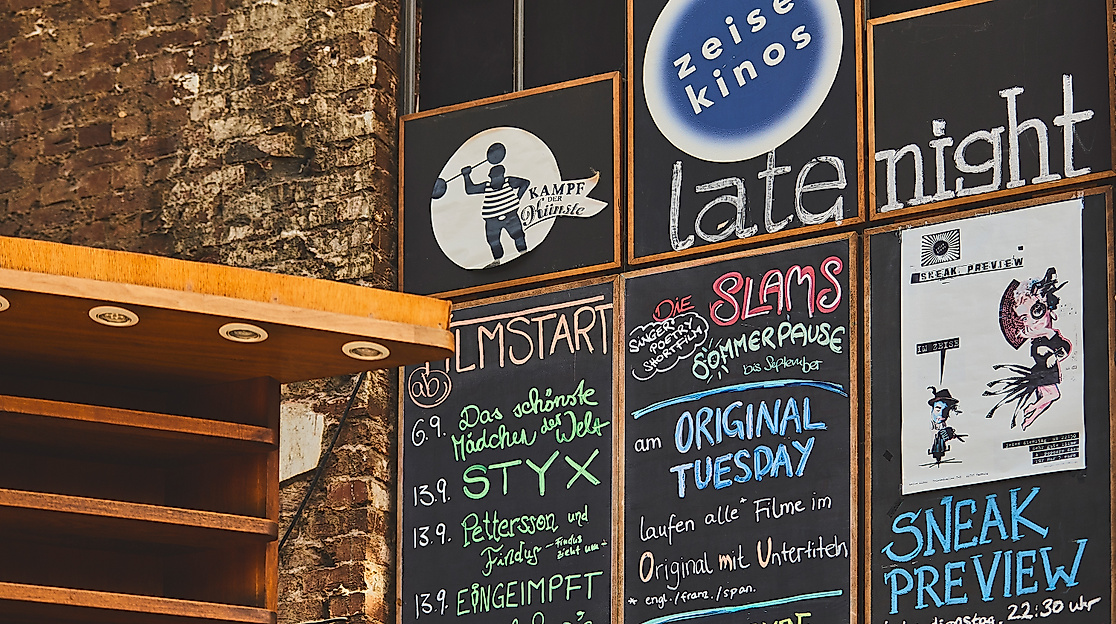 zeise
kinos
late night
KAMPF
DER
Künste
SNEAK PREVIEW
IM ZEISE
FILMSTART
ab
6.9. Das schönste
Mädchen der Welt
13.9. STYX
13.9. Pettersson und
Findus - Findus
zieht um -
13.9. EINGEIMPFT
DIE SLAMS
SINGER
POETRY
SHORTFILM
SOMMERPAUSE
bis September
am ORIGINAL
TUESDAY
laufen alle* Filme im
Original mit Untertiteln
* engl./franz./span.
SNEAK
PREVIEW
dienstag, 22:30 uhr